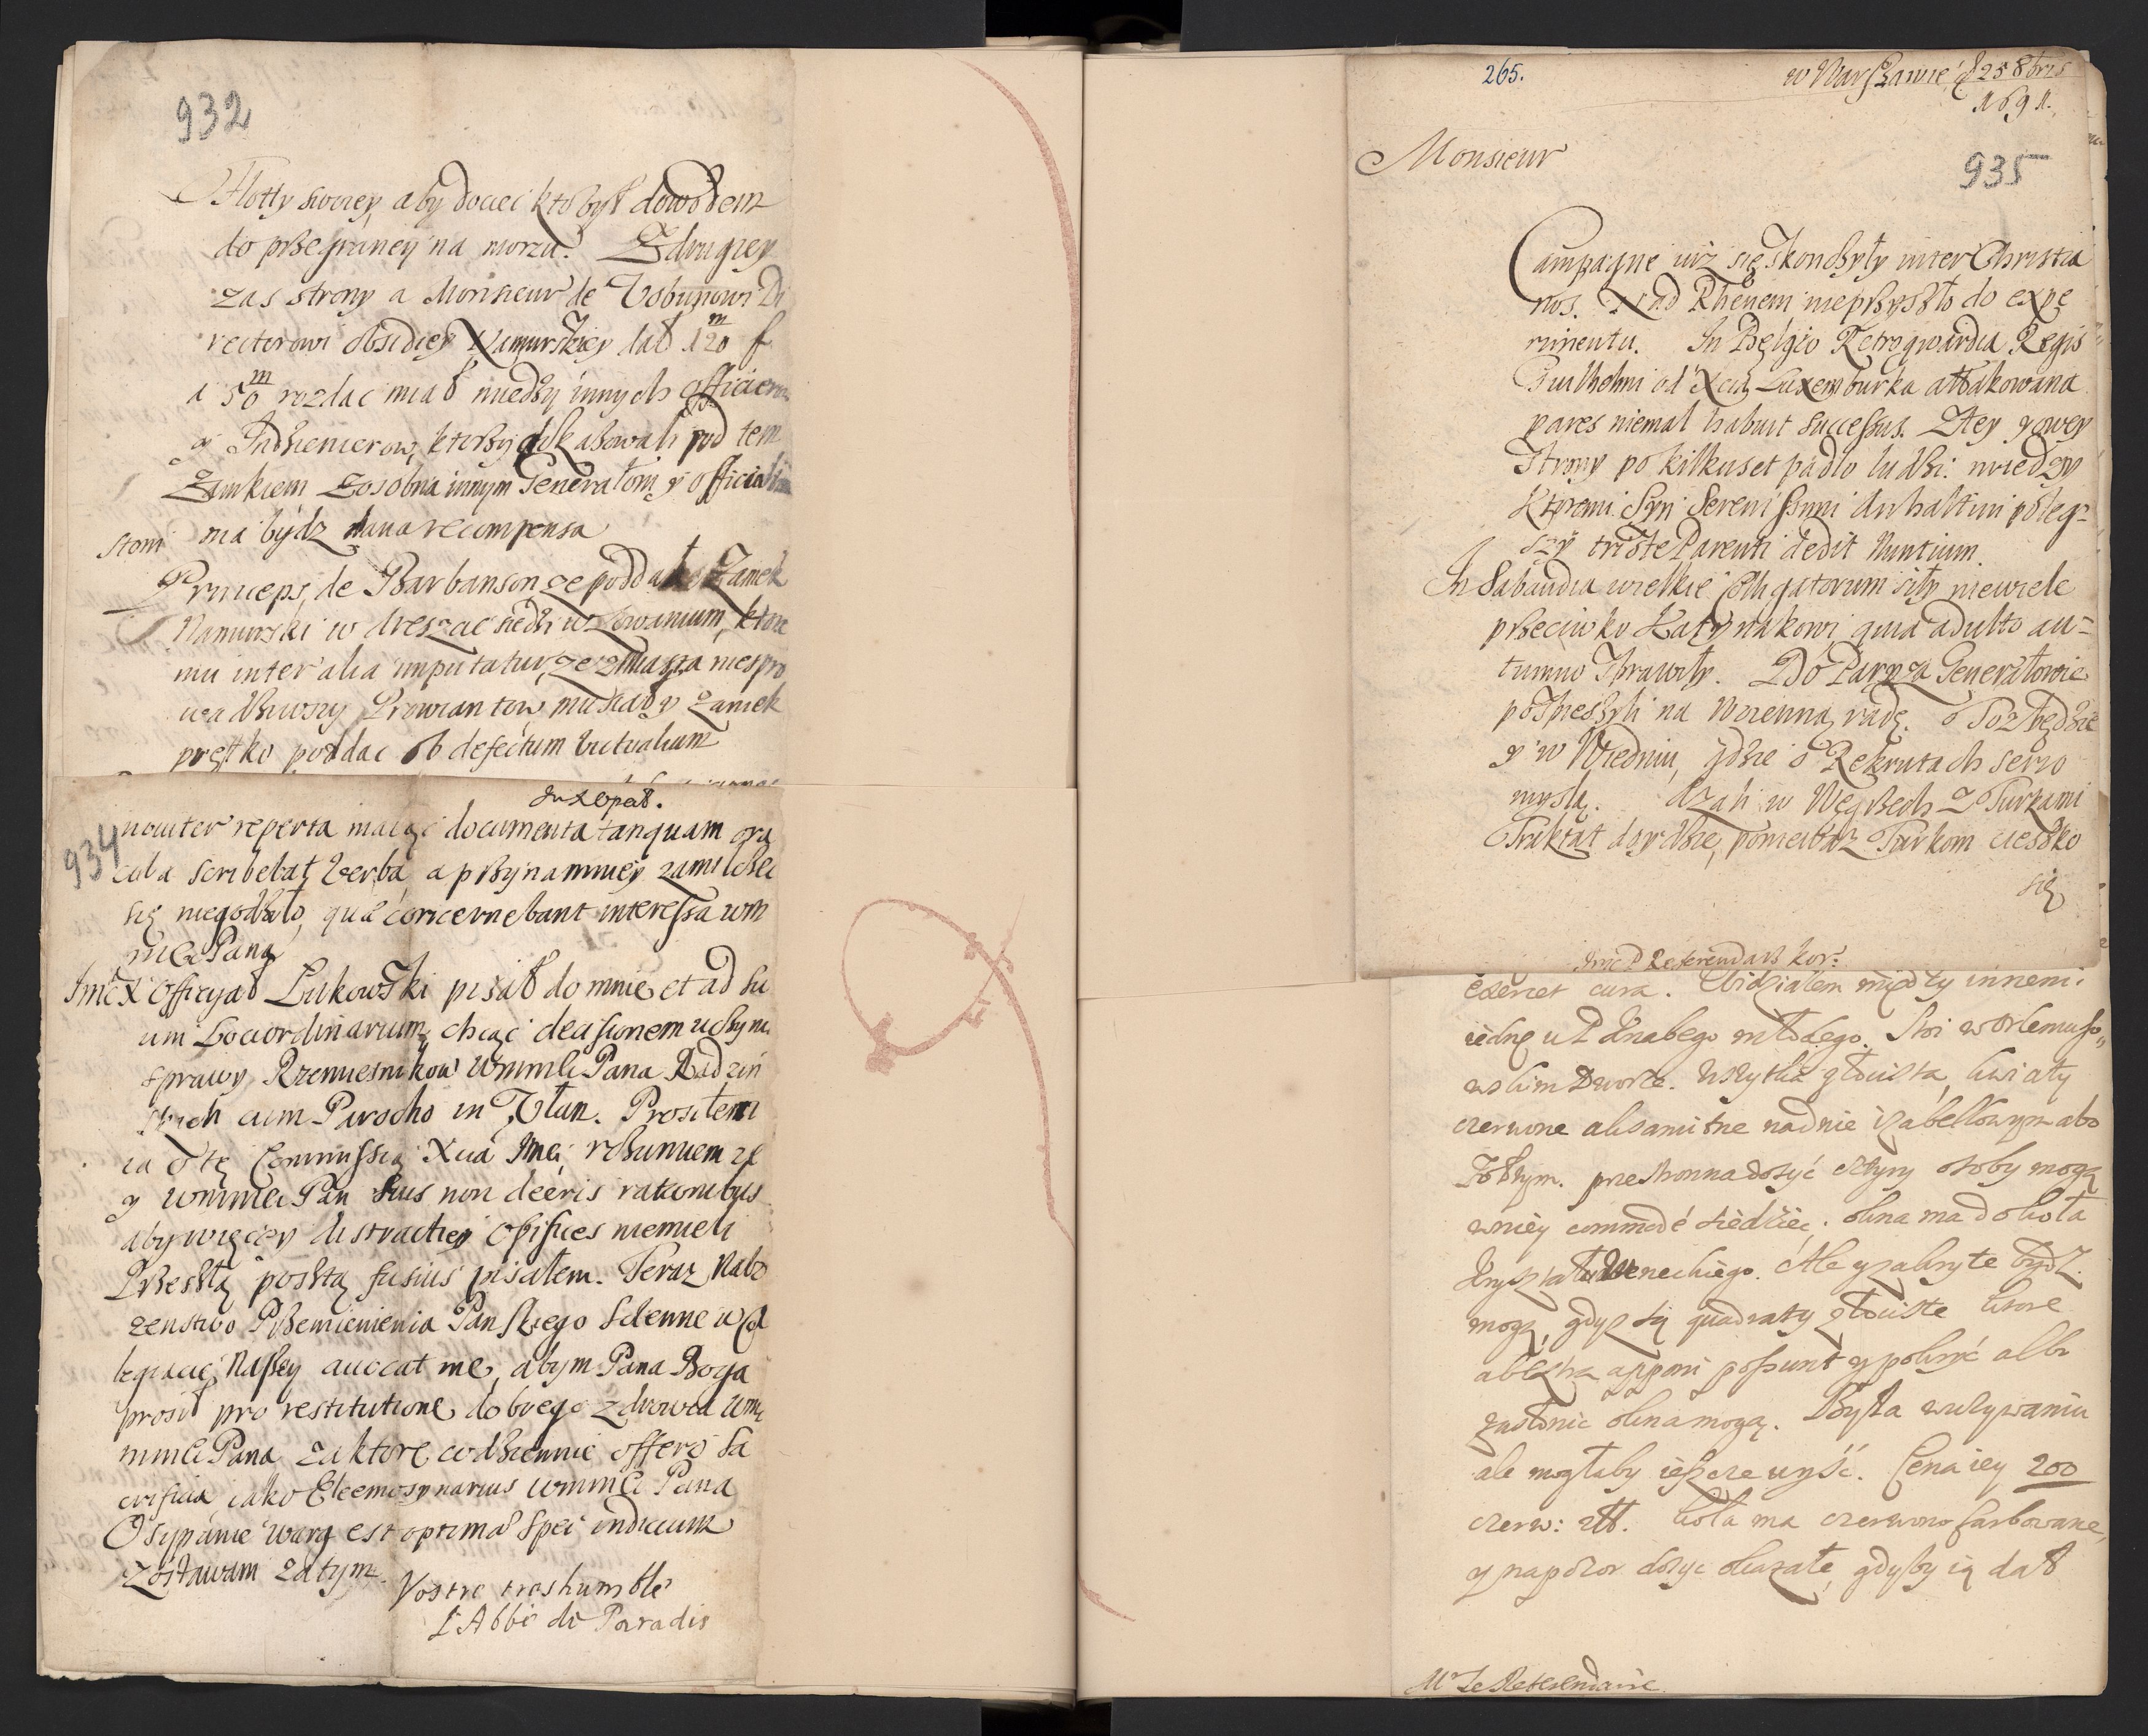 932
Flotty swoiey, aby dociec kto był dowodem
do przegraney na morzu. Z drugiey
zas strony a Monsieur de Vobunowi Di
rectorowi obsidiey Namurskiey dał 120 m f
a 50 m rozdac miał miedzy innych officiero
y Indzienierow, ktorzy dokazowali pod tem
Zamkiem Zosobna innym Generałom y officia
stom ma bydz dana recompensa
Princeps de Barbanson, ze poddał Zamek
Namurski w areszcie siedzi w Lowanium, ktore
mu inter alia imputatur, ze z Miasta niespro
wadziwszy Prowiantow, musiał y zamek
prętko poddac ob defectum victualium
934
noviter reperta maiąc documenta tanquam ora
cula scribebat, verba, a przynamniey zamilczec
się niegodziło, quæ concernebant interessa wm
mci Pana
Jmc X Officyał Lukowski pisał do mnie et ad Su
um Locordinarium, chcąc decisionem uczynic
sprawy Rzemiesnikow Wmmci Pana Radzin
skich cum Parocho in Ulan. Prosiłem
ia o tę Commissią Xcia Jmci, rozumiem ze
y Wmmci Pan suis non deeris rationibus
aby więcey distractiey opifices niemieli
Przeszłą posztą fusius pisałem. Teraz Nabo
zenstwo Przemienienia Panskiego solenne w Col
legiacie Naszey auocat me, abym Pana Boga
prosił pro restitutione dobrego zdrowia Wm
mmci Pana, za ktore codziennie offero Sa
crificia iako Eleemosynarius Wmmci Pana
Osypanie warg est optima Spei indicium
Zostawam zatym
Vostre treshumble
L'Abbé de Paradis
265.
w Warszawie, d 25 8bris
1691.
Monsieur
935
Campagne iuz się skonczyły inter Christia
nos. Nad Rhenem nieprzyszło do expe
rimentu. In Belgio Retrogwardia Regis
Guilhelmi od Xcia Luxemburka attakowana
pares niemal habuit successus. Ztey y owey
Strony po kilkuset padło ludzi: miedzy
ktoremi Syn Serenissimi Anhaltini poleg-
szy triste Parenti dedit Nuntium.
In Sabaudia wielkie Colligatorum siły niewiele
przeciwko Katynakowi quia adulto au=
tumno Sprawiły. Do Paryza Generałowie
pospieszyli na Woienną radę. To będzie
y w Wiedniu, gdzie o Rekrutach serio
myslą. Azali w Węgrzech z Turkami
Traktat doydzie, poniewasz Turkom cieszko
się
Jmc P Referendarz Kor:
exeret cura. Widziałem między innemi
iednę u P. Grabego młodego. Stoi w Orlemuso„
wskim Dworze. Wszytka złocista, kwiaty
czerwone aksamitne nadnie izabellowym abo
zołtym. przestronna dosyć cztyry osoby mogą
wniey commodé siedziec. okna ma dokoła
krysztalu Weneckiego. Ale y zakryte bydz
mogą, gdyz są quadraty złociste ktore
ab extra appani possunt y pokryć albo
zasłonic okna mogą. Była wuzywaniu
ale mogłaby ieszcze uyść. Cena iey 200
czerw: złł. koła ma czerwono farbowane,
y napozor dosyc okazałe, gdyby ią dał
Mr Le Referendaire